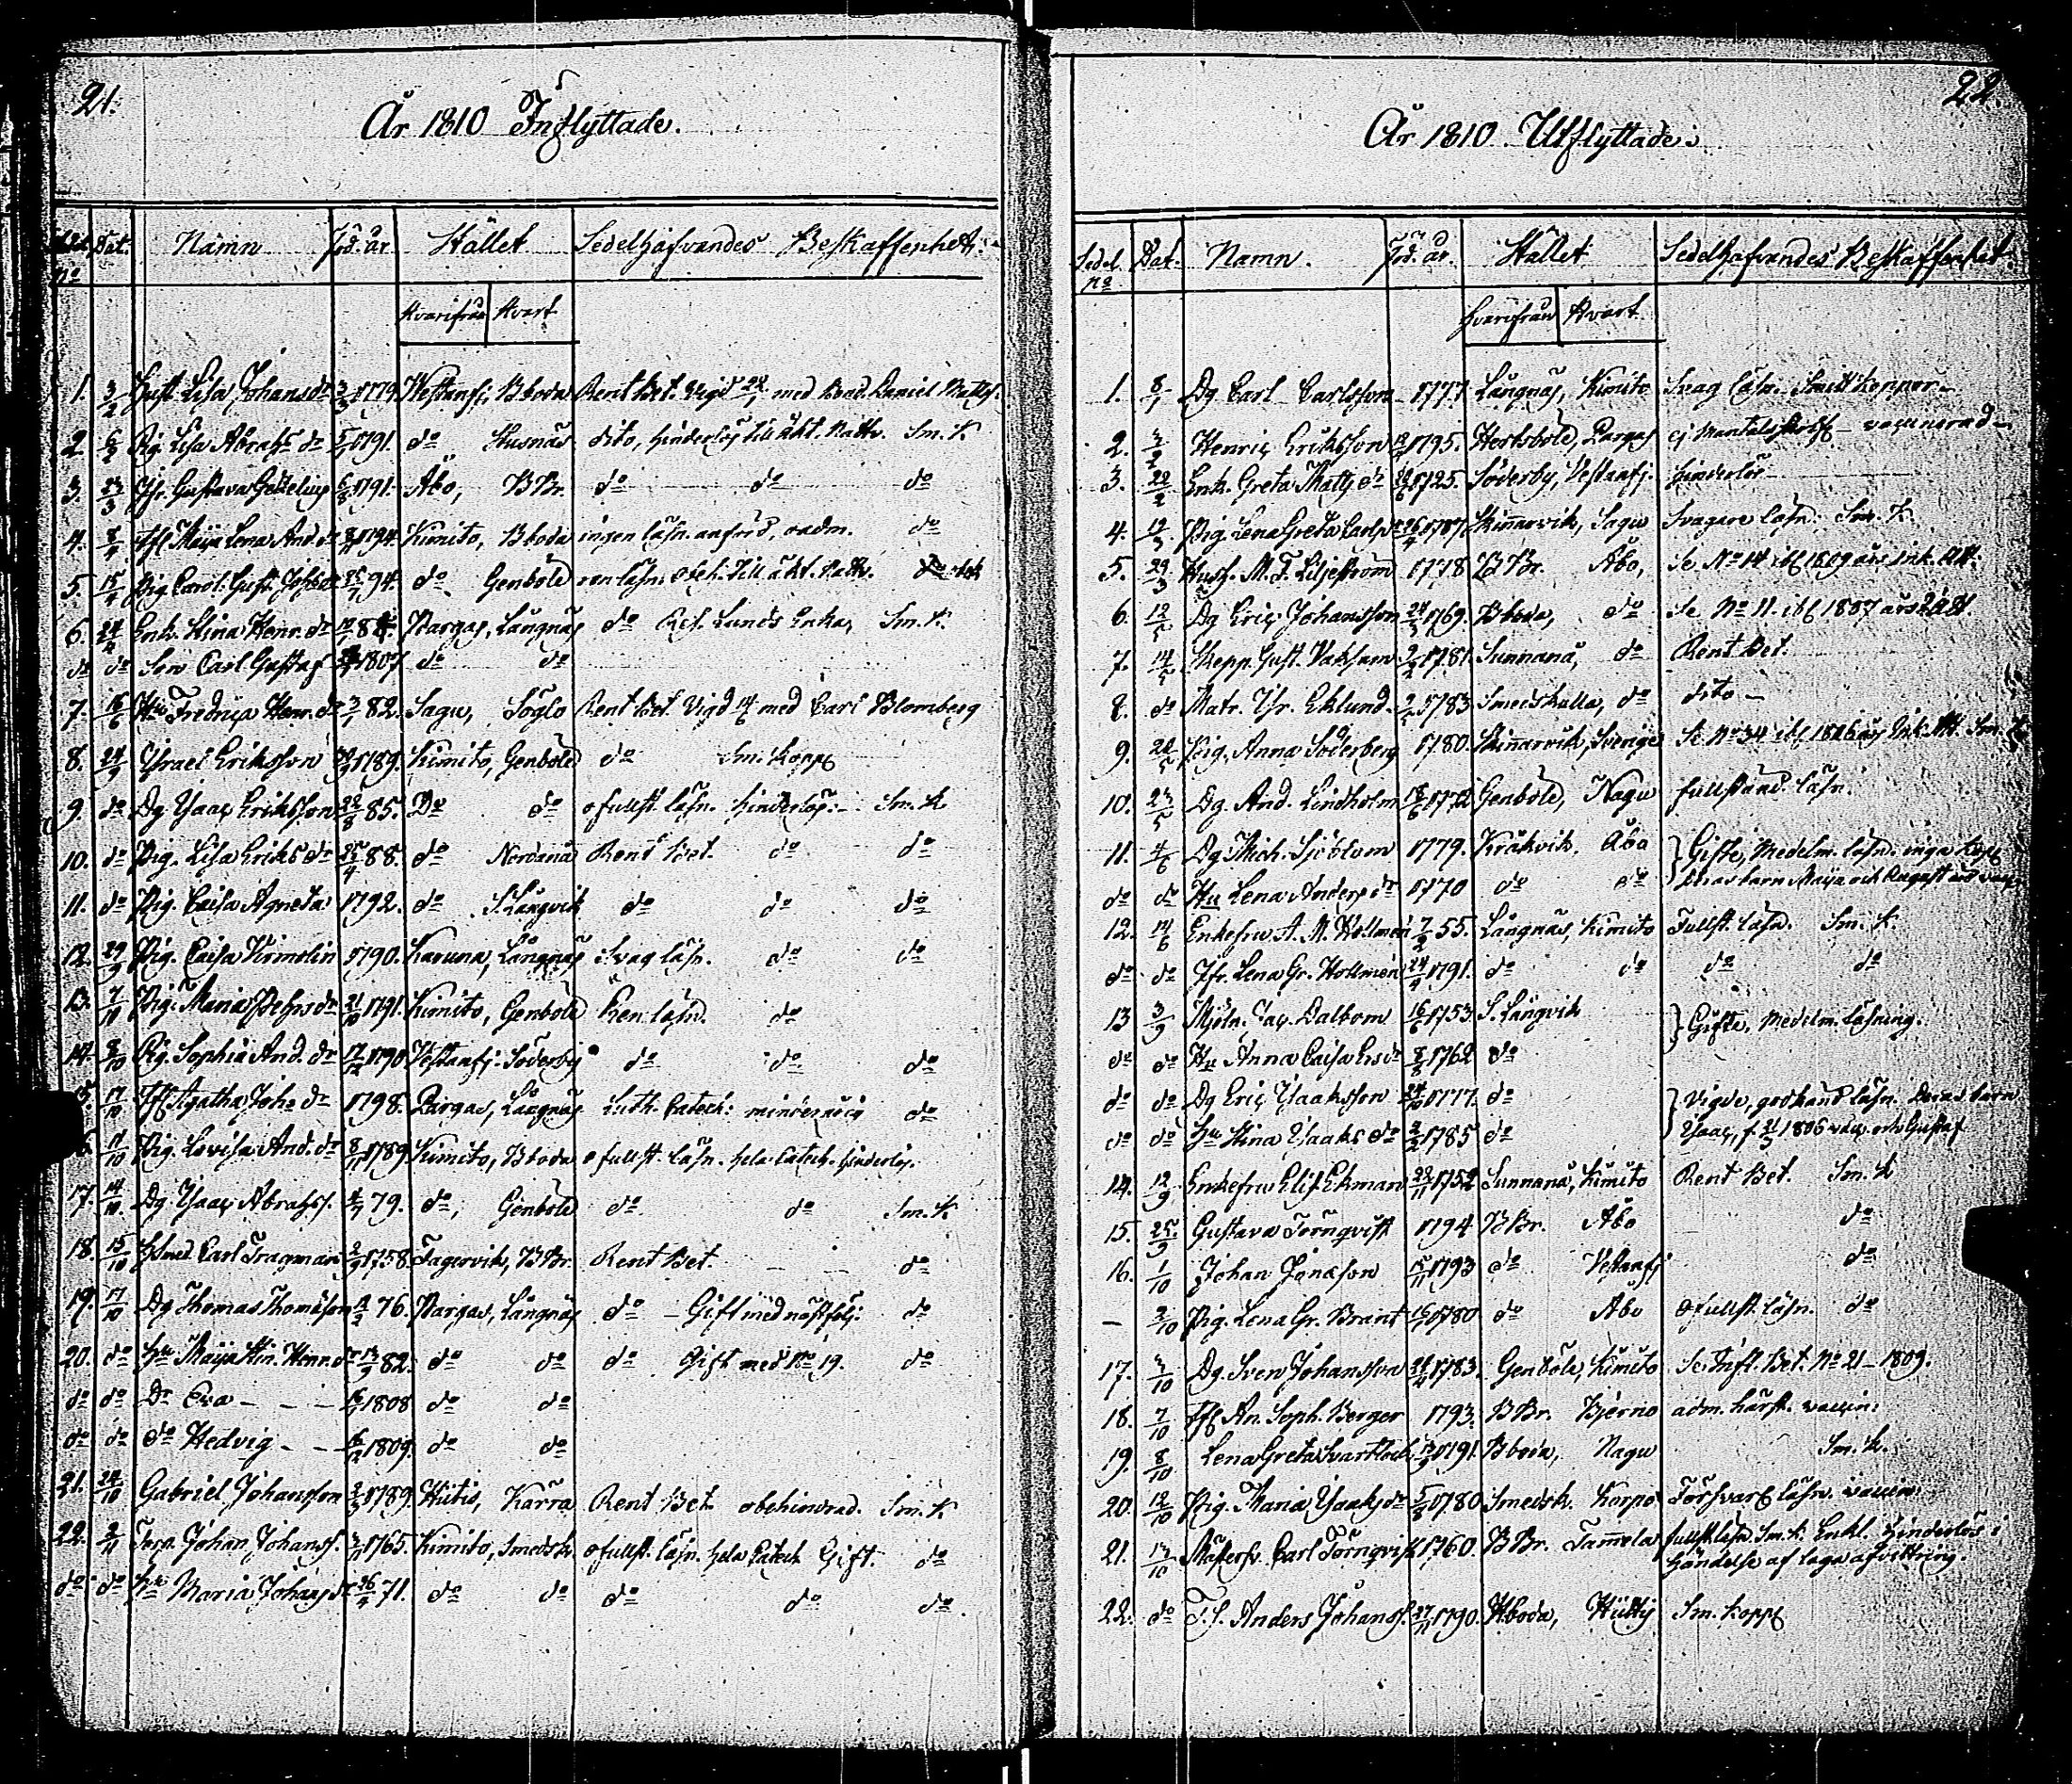 21.
År 1810 Inflyttade.
Sedel nº Dat. Namn Föd. år Stället Sedelhafvandes Beskaffenhet.
Hvarifrån Hvart
1. 3/2 Lisa Johansdr 1779. Vestanfj. Bboda Rent Bet. Vigd med Daniel Matts.
2. Pig. Lisa Abrahs dr 1791. do Husnäs dito, hinderlös till äkt. Nattv. Sm. K
3. 23/3 Jfr. Gustava 1791. Åbo, BBr. do do do
4. 8/4 Maija Lena And. dr 1794. Kimito, Bboda ingen läsn. oadm. do
5. 15/4 Pig. Carol. Gust. Johs dr 94. do Genböle ren läsn. obeh. till äkt. Nattv.
6. 24/4 Enk. Stina Henr. dr Pargas, Långnäs do Enka, Sm. K.
do do Son Carl Gustaf 1807 do do
7. 16/6 Hu Fredrica Henr. dr 82. Sagu, Söglo Rent Bet. Vigd med Carl Blomberg
8. 24/9 Ysrael Eriksson 1789. Kimito, Genböle do Sm. Kopp
9. do Dg Ysaac Eriksson 22/8 85. Do do ofullst. läsn. hinderlös. Sm. K
10. do Pig. Lisa Eriks dr 25/4 88. do Nordanå Rent Bet. do do
11. do Pig. Caisa Agneta 1792. do S. Långvik do do do
12. 29/9 Pig. Caisa 1790. Karuna, Långnäs Svag läsn. do do
13. 7/10 Pig. Maria Pehrs dr 21/10 1791. Kimito, Genböle Ren läsn. do
14. 8/10 Pig. Sophia And. dr 17/12 1790 Vestanfj. Söderby do do do
15. 17/10 Agatha Joh. dr 1798. Pargas, Långnäs Luth. Catech. do
16. 11/10 Pig. Lovisa And. dr 8/11 1789 Kimito, Bboda ofullst. läsn. hela Catech. hinderlös.
17. 14/10 Dg Ysaac Abrahss. 79. do, Genböle do do Sm. K
18. 15/10 Carl Tragman 2/9 1758. Fagervik, BBr. Rent Bet. do
19. 17/10 Dg Thomas Thomasson 76. Pargas, Långnäs do Gift med nästfölj. do
20. do Hu Maija Stin. Henr. dr 13/9 82. do do do Gift med No 19. do
do do Dr Eva 1808 do do
do do do Hedvig 1809. do do
21. 24/10 Gabriel Johansson 1789. Hitis, Kärra Rent Bet. obehindrad. Sm. K
22. 2/11 Torp. Johan Johanss. 1765. Kimito, Smedsk ofullst. läsn. hela Catech. Gift. do
do do Hu Maria Johans dr 26/4 71. do do do do do
22.
År 1810 Utflyttade.
Sedel nº Dat. Namn. Föd. år. Stället Sedelhafvandes Beskaffenhet.
Hvarifrån Hvart
1. Dg Carl Carlsson 1777 Långnäs, Kimito Svag läsn. Smittkoppor
2. 3/2 Henric Eriksson 1795. Hertsböle, Pargas ej Mantalsskrifv. vaccinerad
3. 22/2 Enk. Greta Matts dr 1725. Söderby, Vestanfj. hinderlös
4. 12/3 Pig. Lena Greta Carls dr 26/4 1787 Skinnarvik, Sagu Svagare läsn. Sm. K.
5. 29/3 Hush. M. F. Liljeström 1778 BBr. Åbo, Se No 14 ibl 1809 års Ink. Att.
6. 12/5 Dg Eric Johansson 1769. Bboda, do Se No 11. ibl 1807 års
7. 14/5 Skepp. Gust. 1781. Sunnanå, do Rent Bet.
8. do Matr. Eklund. 1783 Smedskulla, do dito
9. Pig. Anna Söderberg 1780. Skinnarvik, Sverige Se No 34 ibl års Ink. Att. Sm. K
10. 23/5 Dg. And. Lindholm 1772 Genböle, Nagu fullständ. läsn.
11. 4/6 Dg Mich. Sjöblom 1779. Kråkvik, Åbo Gifte, Medelm. läsn. inga Kopp
do do Hu Lena Anders dr 1770 do do Deras barn Maija och August
12. 14/6 Enkefru A. M. Hollmén 7/2 55. Långnäs, Kimito Fullst. läsn. Sm. K.
do do Jfr. Lena Gr. Hollmén 24/4 1791. do do do do
13 3/9 Mjöln. Jac. Dalbom 16/6 1753. S. Långvik Gifte, Medelm. läsning.
do do Hu Anna Caisa Ers dr 1762 do
do do Dg Eric Ysaaksson 24/10 1777. do Vigde, godkänd läsn. Deras barn
do do Hu Stina Ysaaks dr 1785 do Ysaac, f. 1806 vacc. och Gustaf
14. 12/9 Enkefru Elis. Ekman 22/11 1752 Sunnanå, Kimito Rent Bet. Sm. K
15. 25/9 Gustava Törnqvist 1794 BBr. Åbo do
16. 1/10 Johan Jonasson 15/11 1793 do Vestanfj do
— 2/10 Pig. Lena Gr. Brant 1780 do Åbo ofullst. läsn. do
17. 3/10 Dg. Sven Johansson 1783. Genböle, Kimito Se Infl. Bet. No 21 1809.
18. 7/10 An. Soph. Berger 1793. BBr. Bjerno adm. härst. vaccin.
19. 8/10 Lena Greta 1791. Bboda, Nagu Sm. K.
20. 12/10 Pig. Maria Ysaaks dr 1780 Smedsk. Korpo Försvarl. läsn. vaccin.
21. 13/10 Mästersv. Carl Törnqvist 1760. BBr. Tammela fullst. läsn. Sm. K. Enkl. hinderlös i
händelse af laga afvittring.
22. do Anders Johanss. 27/11 1790. Hboda, Hiittis Sm. kopp